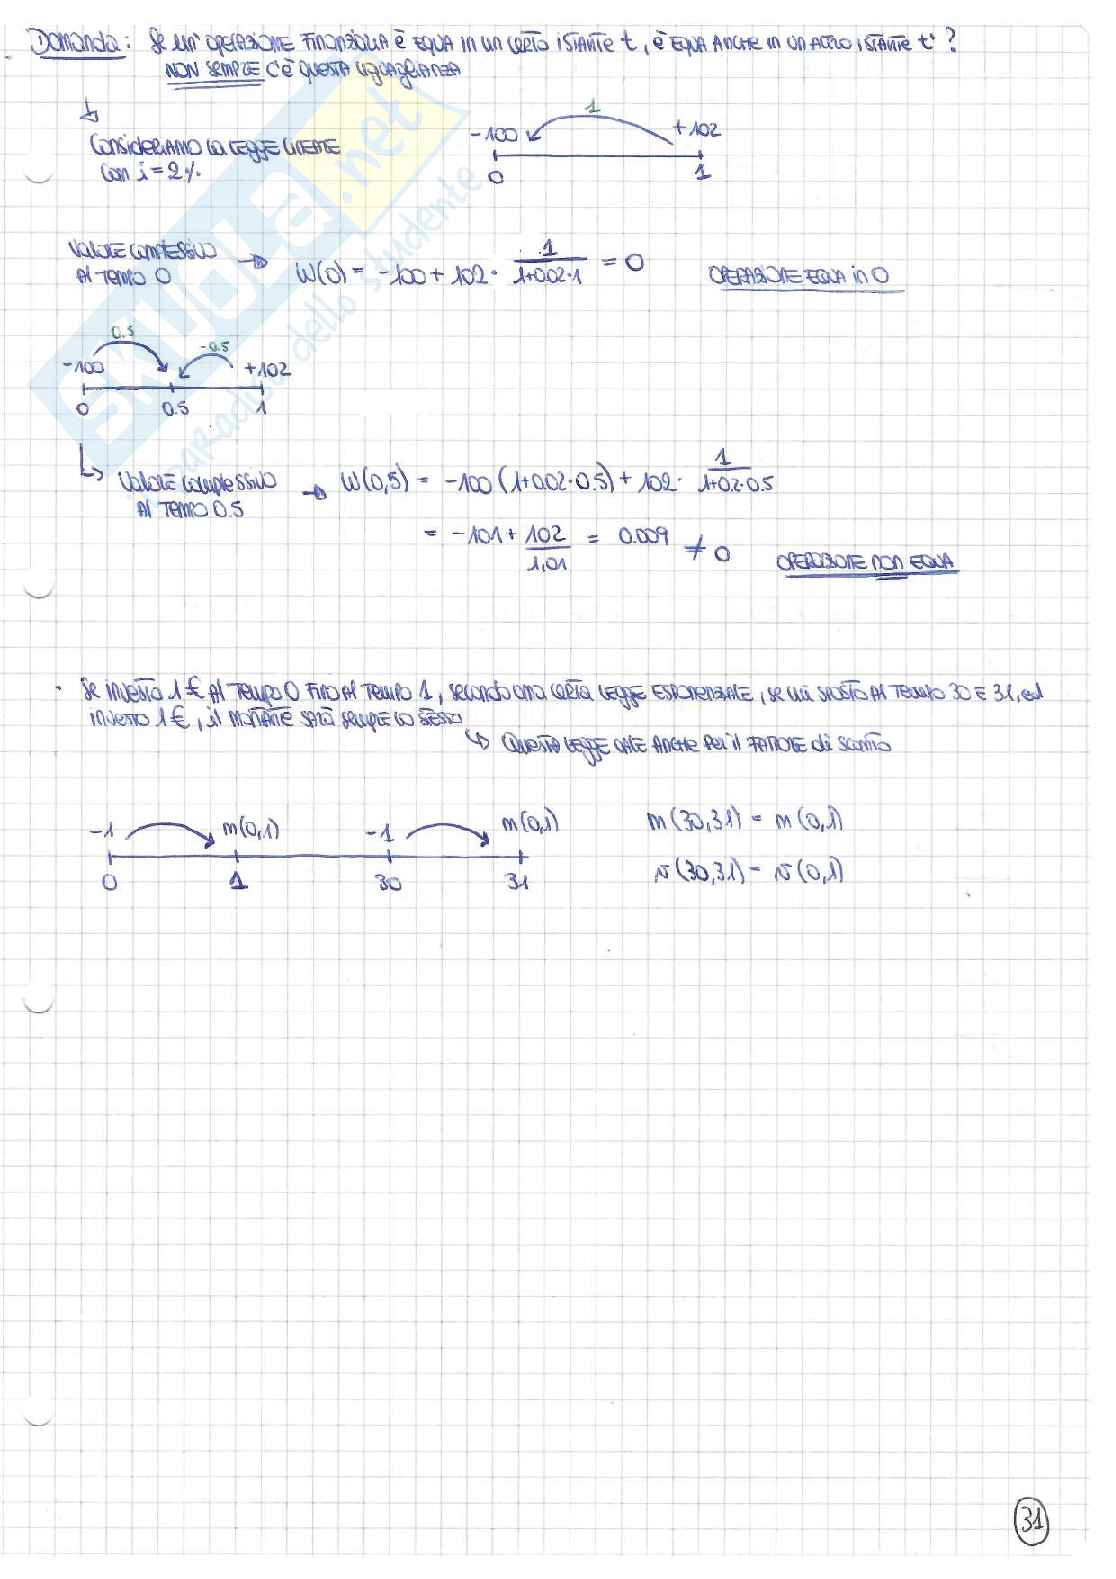 Domanda: Se un' operazione finanziaria è equa in un certo istante t, è equa anche in un altro istante t'?
NON SEMPRE c'è questa uguaglianza
Consideriamo la legge lineare
con i = 2%
1
-100 +102
0 1
Valore complessivo
al tempo 0 → W(0) = -100 + 102 · 1/(1+0.02·1) = 0 OPERAZIONE EQUA in 0
0.5 -0.5
-100 +102
0 0.5 1
Valore complessivo
al tempo 0.5 → W(0,5) = -100 (1+0.02·0.5) + 102 · 1/(1+0.2·0.5)
= -101 + 102/1,01 = 0.009 ≠ 0 OPERAZIONE NON EQUA
· Se investo 1€ al tempo 0 fino al tempo 1, secondo una certa legge esponenziale, se mi sposto al tempo 30 e 31, ed
investo 1€, il montante sarà sempre lo stesso
↳ Questa legge vale anche per il fattore di sconto
-1 m(0,1) -1 m(0,1) m(30,31) = m(0,1)
0 1 30 31 v(30,31) = v(0,1)
31
skuola.net
paradiso dello studente